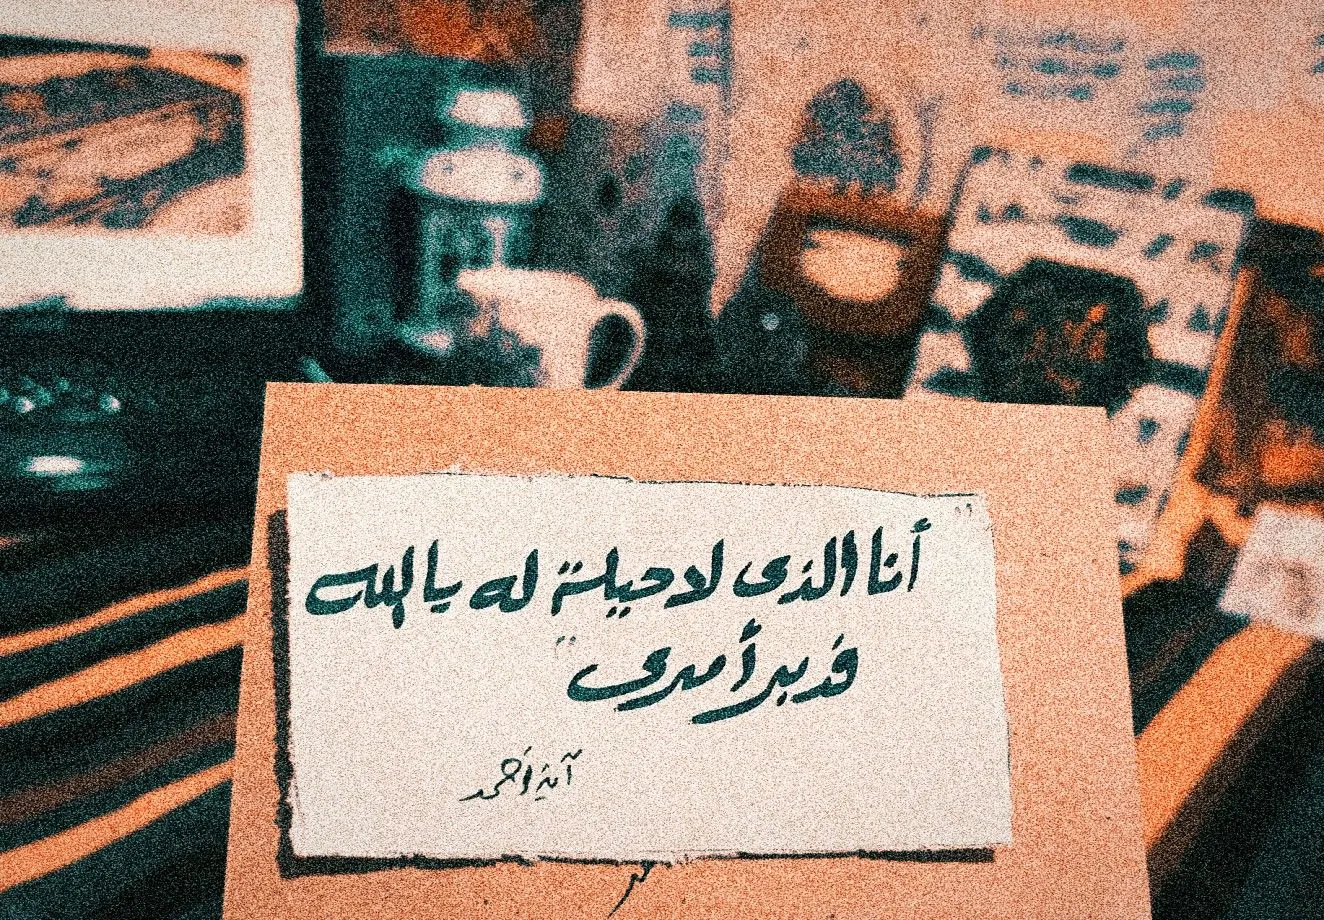 "أنا الذى لا حيلة له يا الله
فدبر أمرى"
آية أحمد